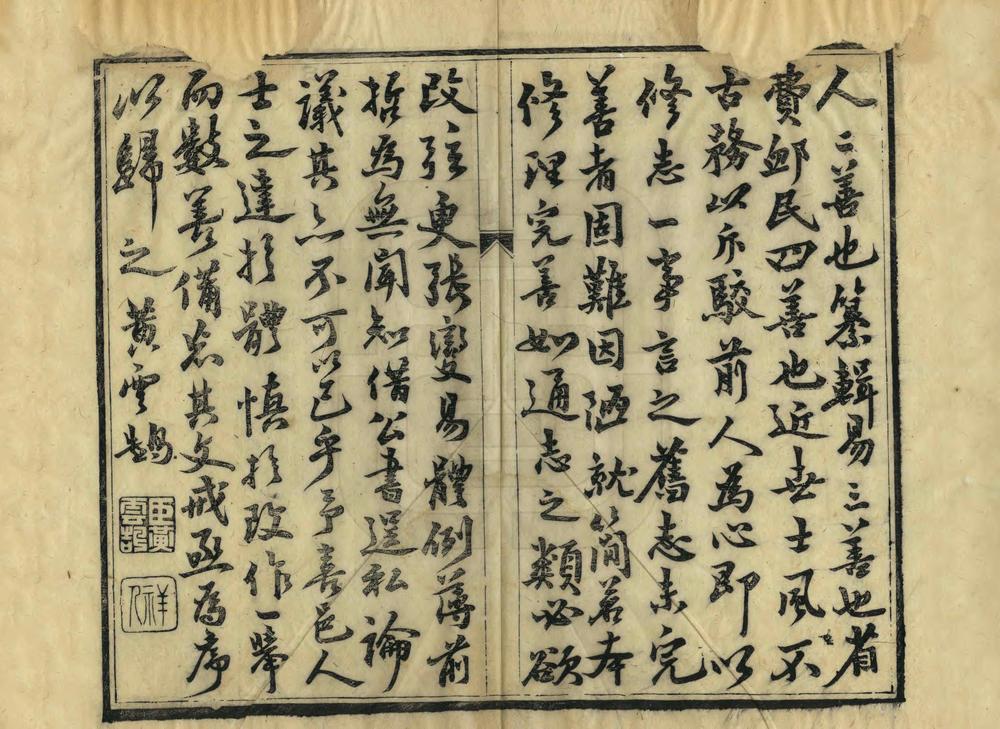 人二善也纂輯易三善也省
費卹民四善也近世士風不
古務以斥駁前人為心即以
修志一事言之舊志未完
善者固難因陋就簡若本
修理完善如通志之類必欲
改弦更張變易體例薄前
哲為無聞知借公書逞私論
議其亦不可以已乎予喜邑人
士之達於體慎於改作一舉
而數善備忘其文戒亟為序
以歸之黃雲鵠
臣黃雲鵠
祥人